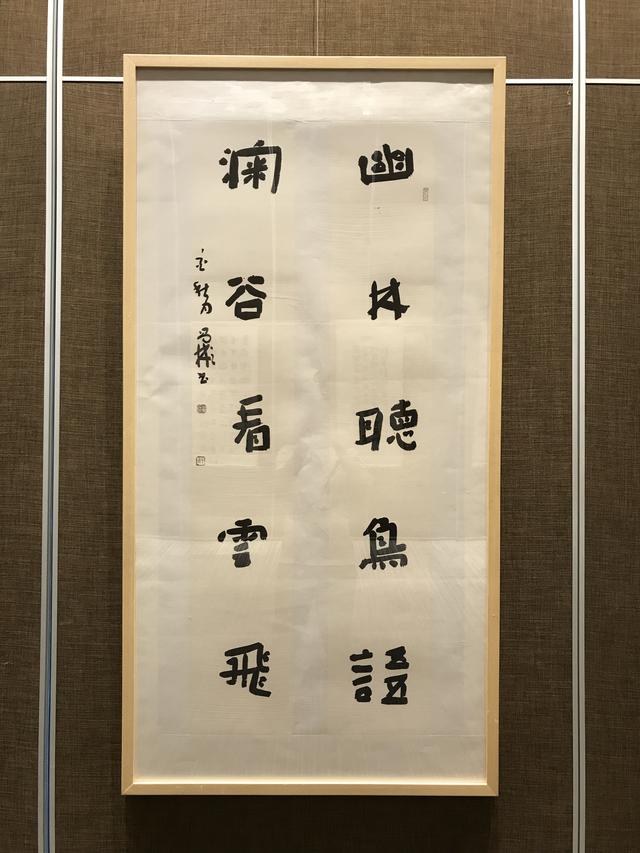 幽林聽鳥語
谷看雲飛